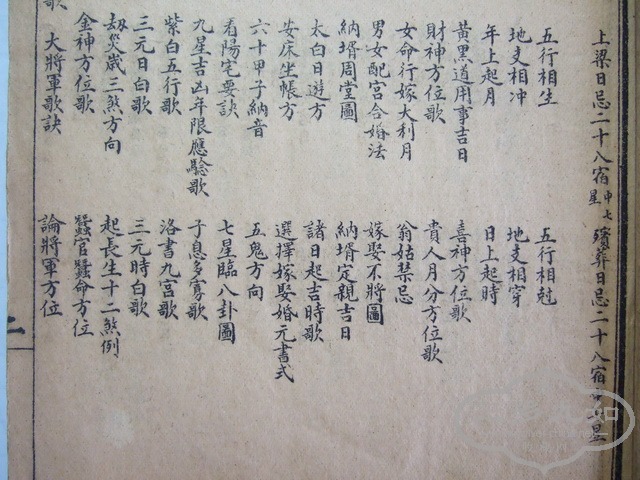 上梁日忌二十八宿中七星 殯葬日忌二十八宿中七星
五行相生 五行相尅
地支相冲 地支相穿
年上起月 日上起時
黃黑道用事吉日 喜神方位歌
財神方位歌 貴人月分方位歌
女命行嫁大利月 翁姑禁忌
男女配宮合婚法 嫁娶不將圖
納壻周堂圖 納壻定親吉日
太白日遊方 諸日起吉時歌
安床坐帳方 選擇嫁娶婚元書式
六十甲子納音 五鬼方向
看陽宅要訣 七星臨八卦圖
九星吉凶年限應驗歌 子息多寡歌
紫白五行歌 洛書九宮歌
三元日白歌 三元時白歌
劫災歲三煞方向 起長生十二煞例
金神方位歌 蠶官蠶命方位
大將軍歌訣 論將軍方位
歌
二